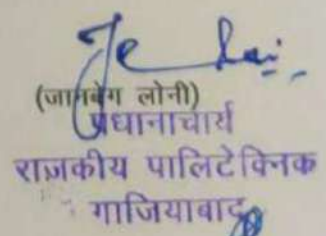 (जानबेग लोनी)
प्रधानाचार्य
राजकीय पालिटेक्निक
गाजियाबाद